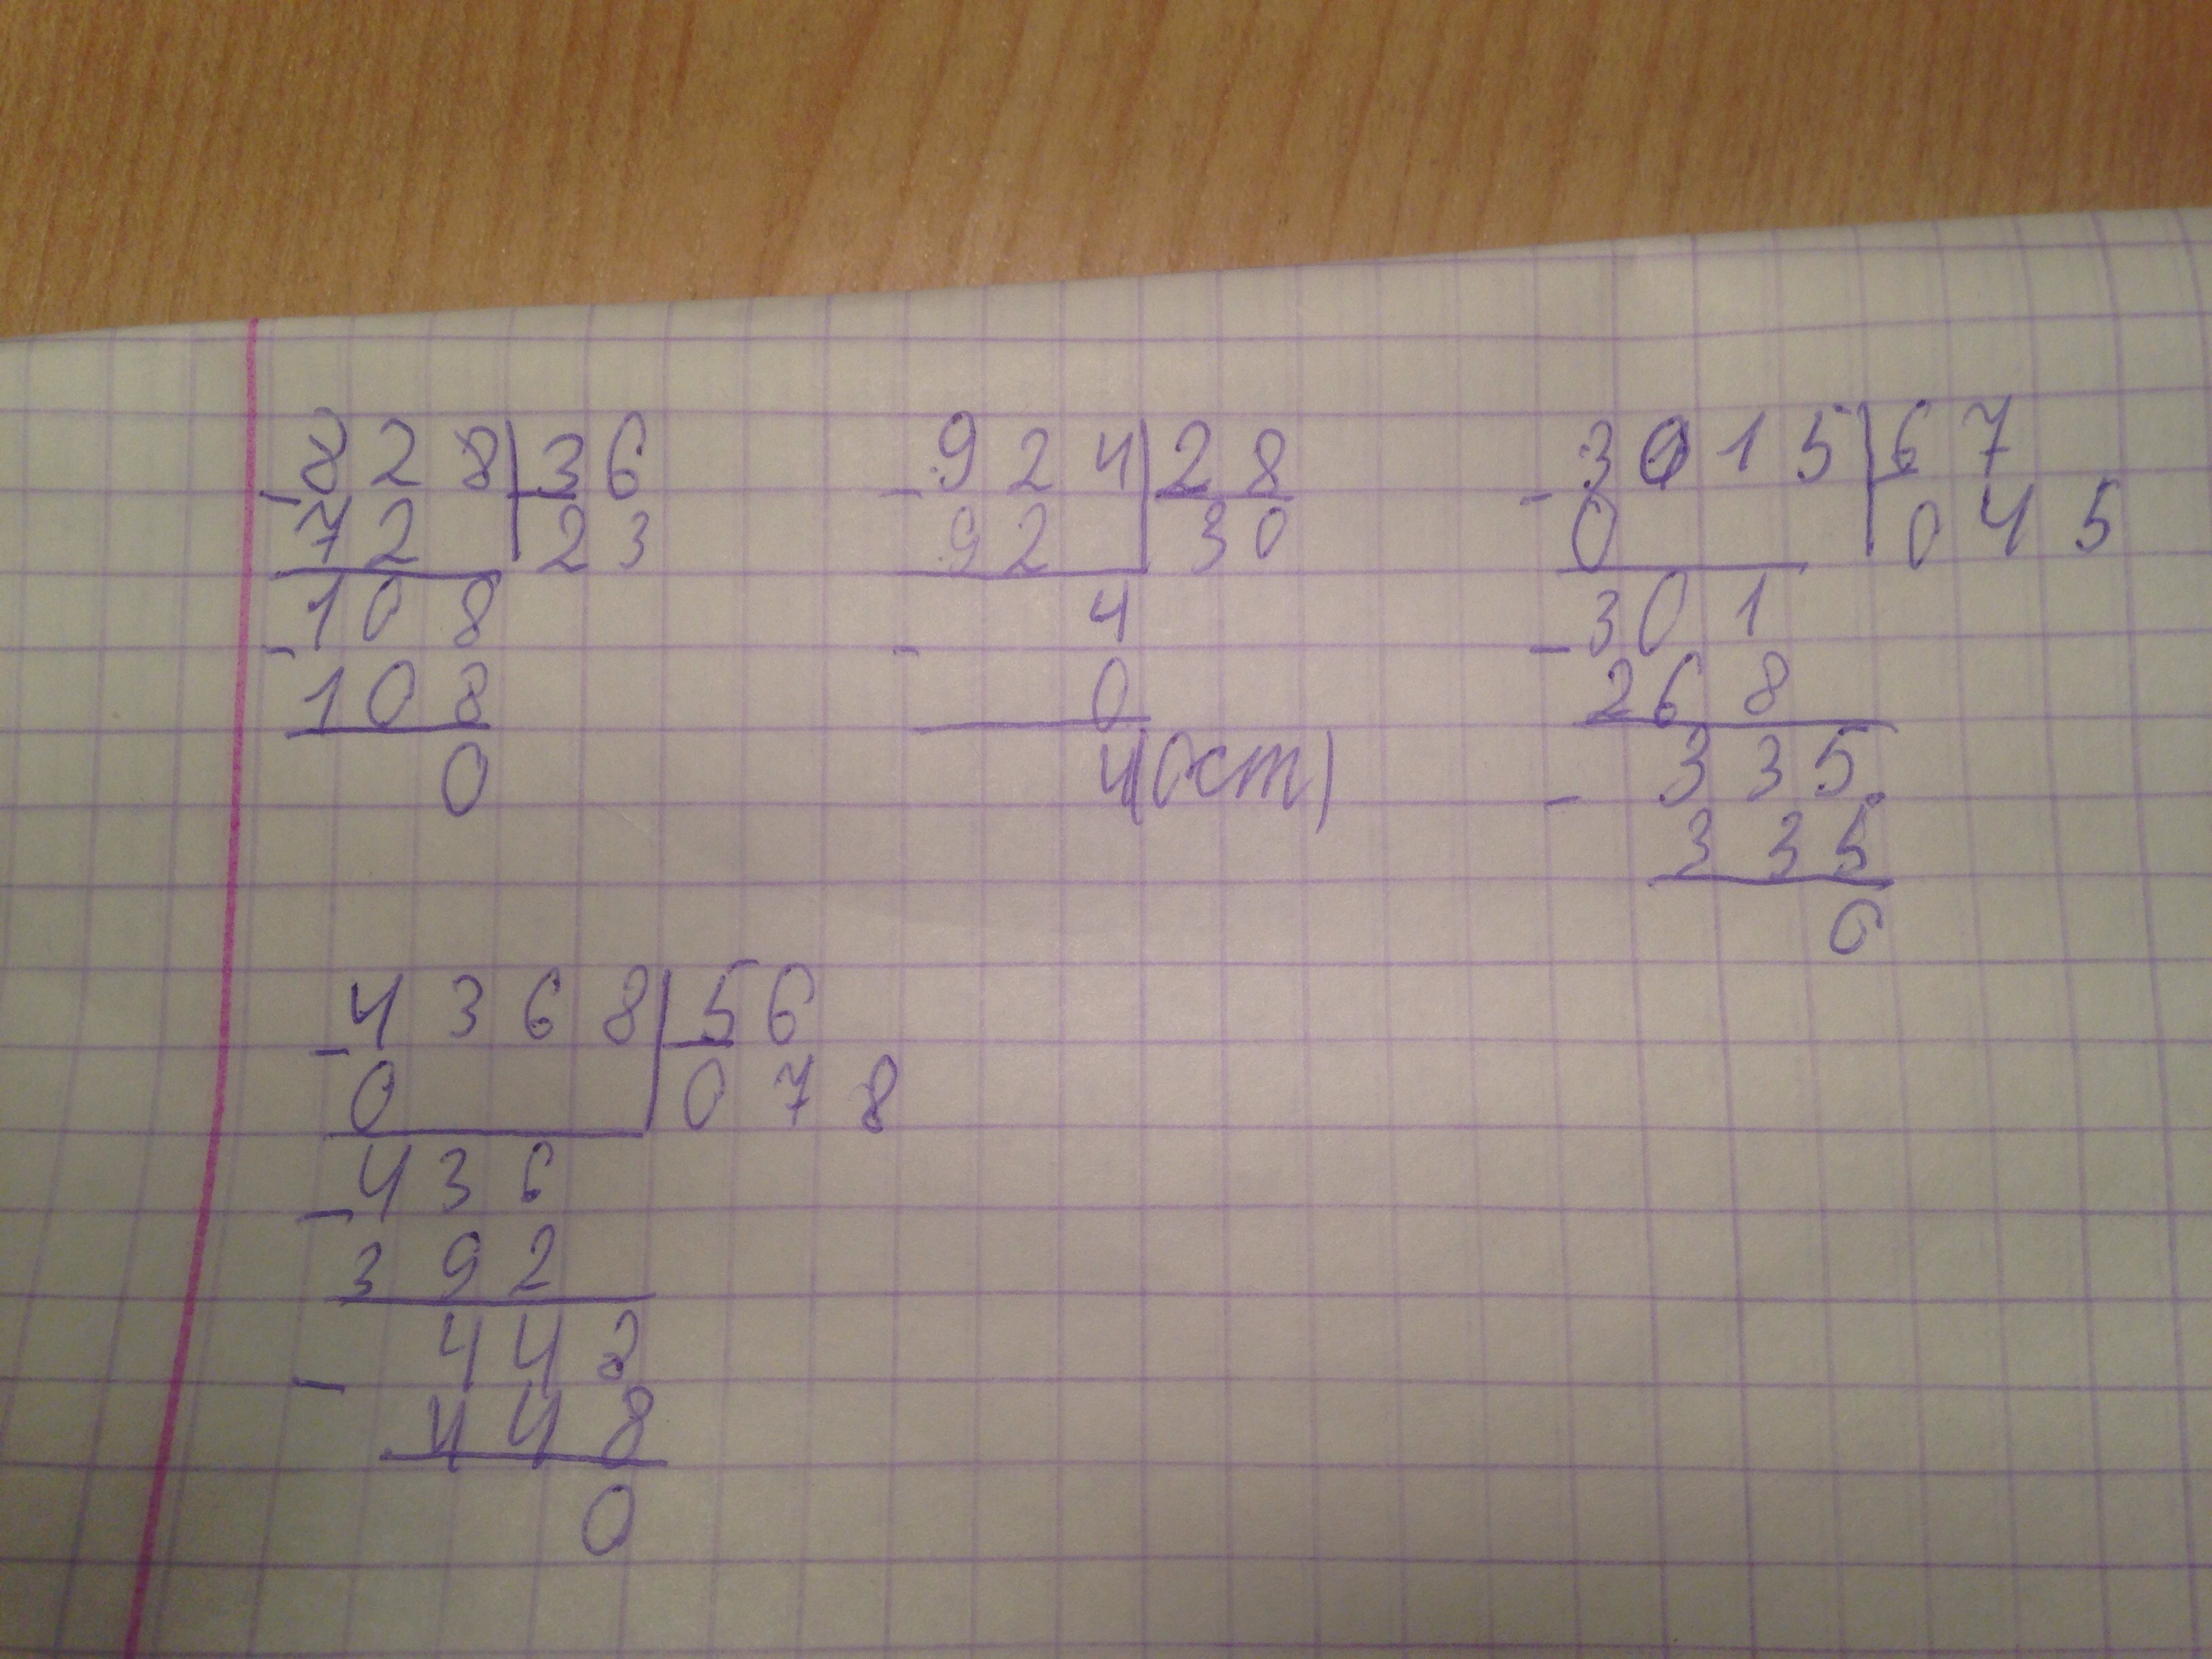 828|36
-72 23
-108
108
0
924|28
-92 30
-4
0
4(ост)
3015|67
-0 045
-301
268
-335
335
0
4368|56
-0 078
-436
392
-448
448
0